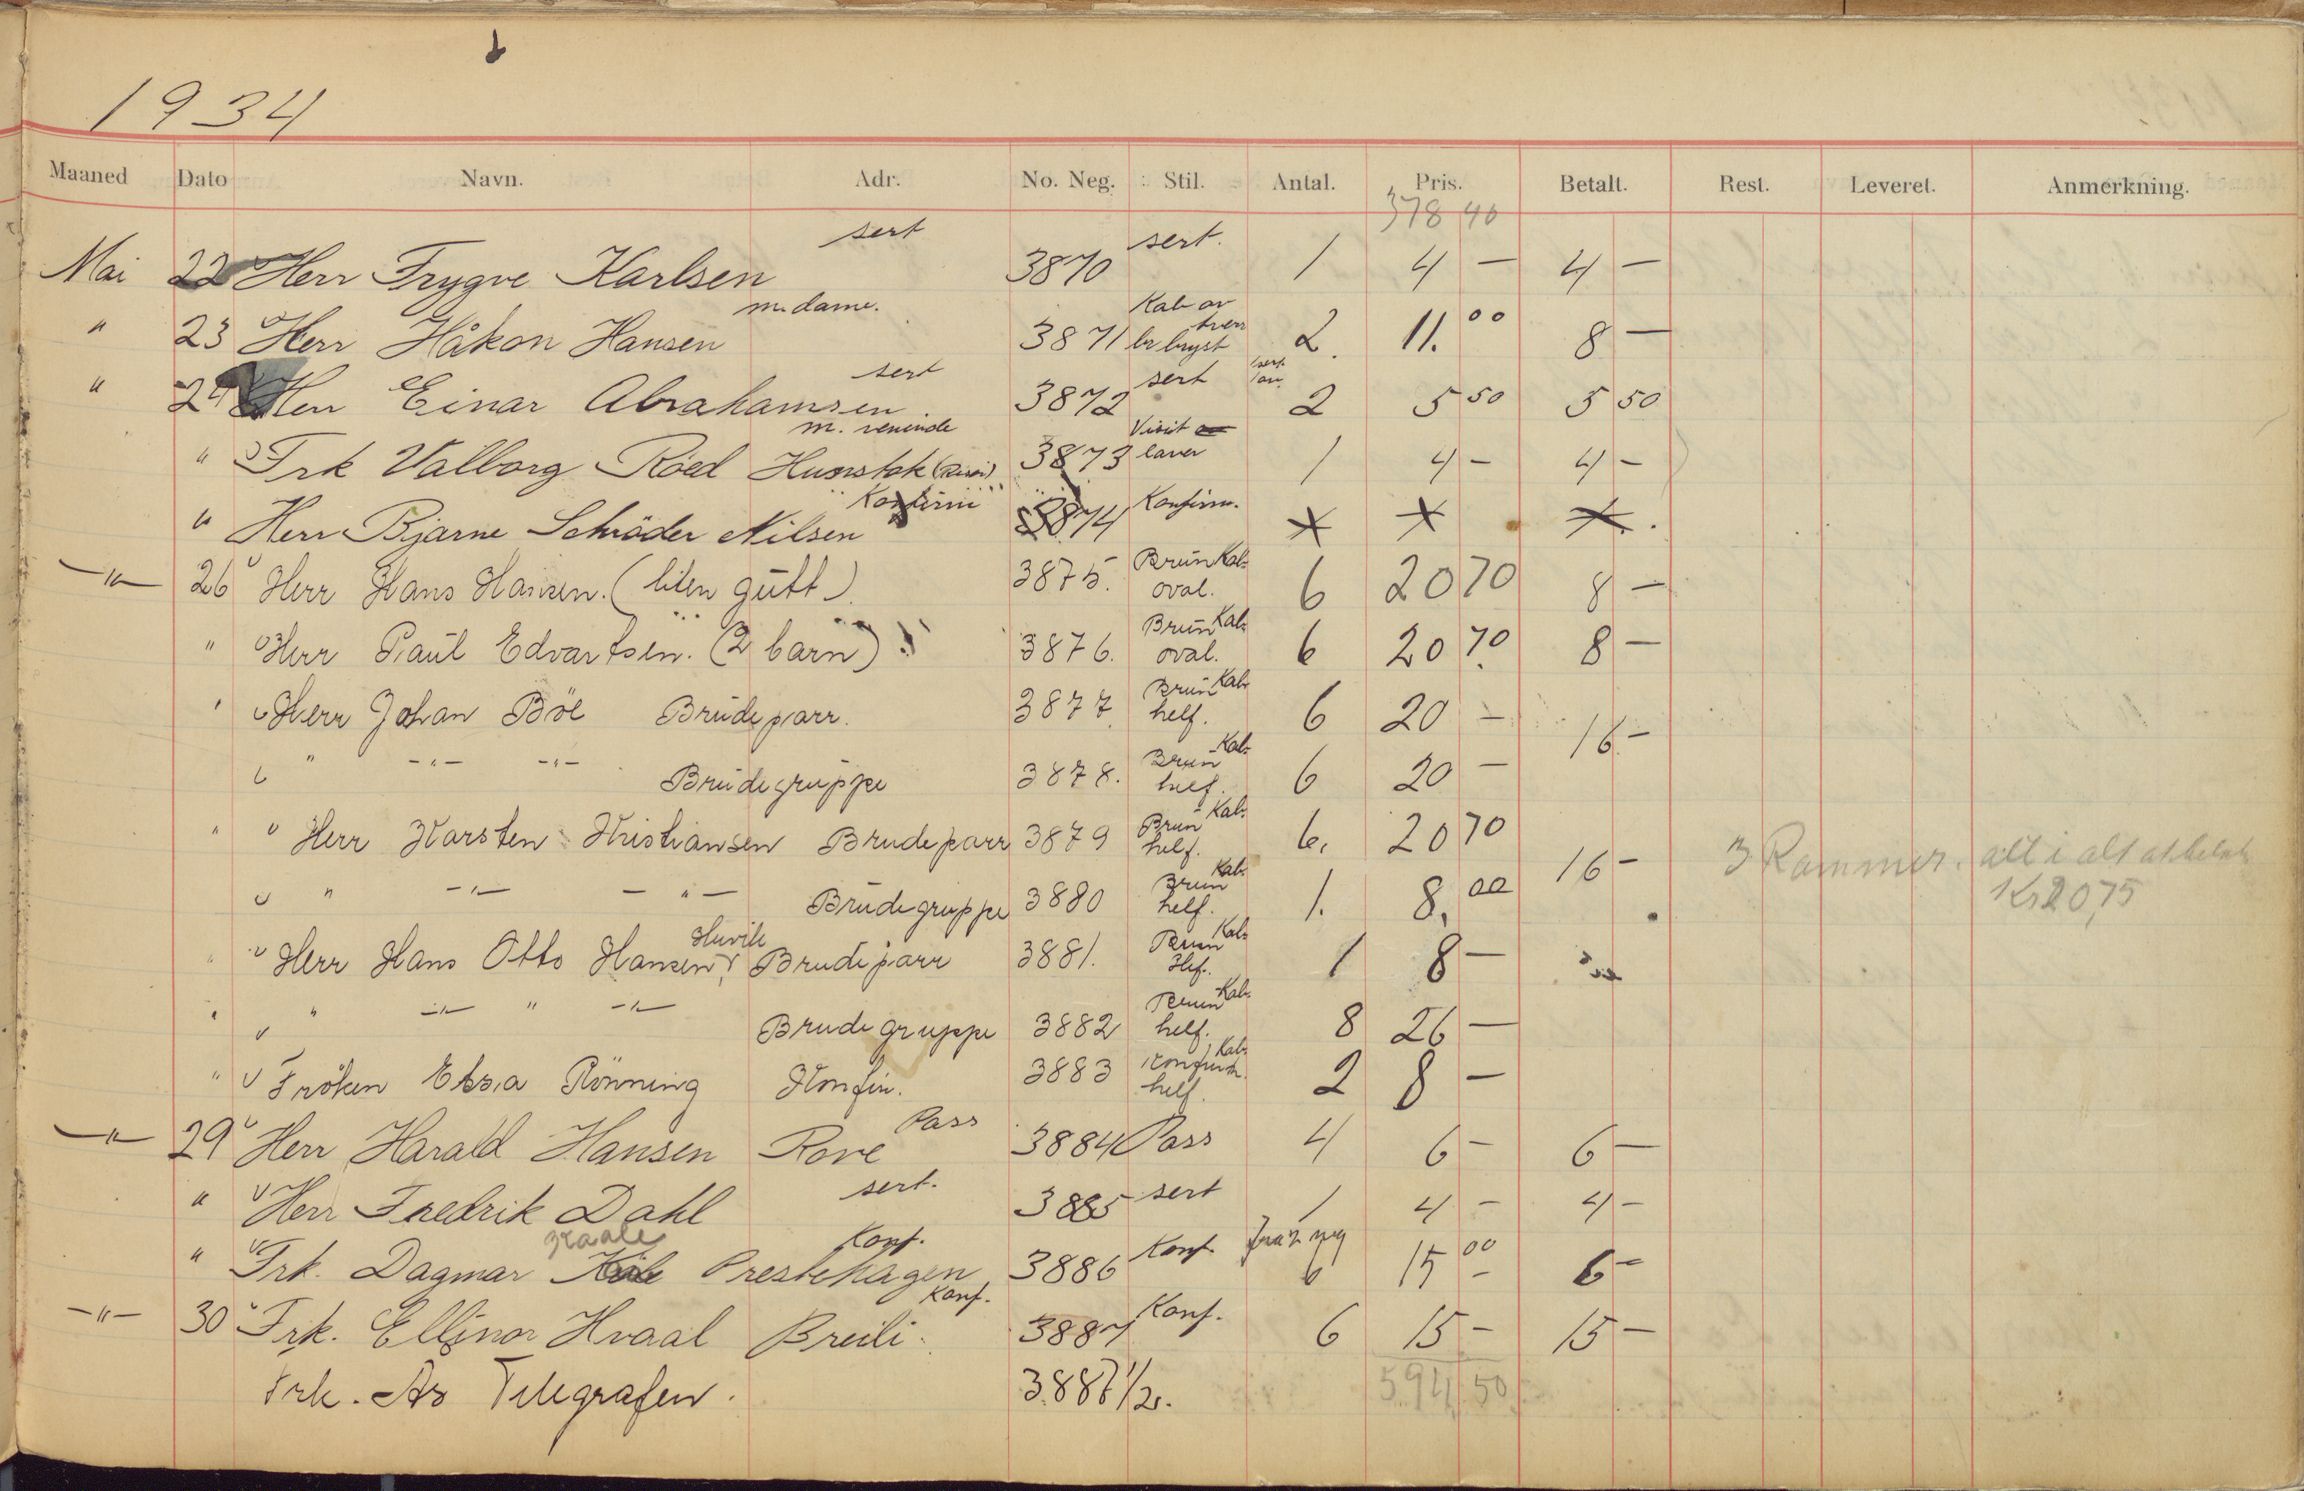 1934
Maaned Dato Navn. Adr. No. Neg. Stil. Antal. Pris. Betalt. Rest. Leveret. Anmerkning.
378 40
Mai 22 Herr Trygve Karlsen sert 3870 sert. 1 4 — 4 —
" 23 Herr Håkon Hansen m. dame. 3871 Kab av br bryst 2. 11.00 8 —
" 24 Herr Einar Abrahamsen. sert 3872 sert 2 5 50 5 50
" Frk Valborg Röed m. veninde 3873 Visit 1 4 — 4 —
" Herr Bjarne Schröder Nilsen 3874 Konfirm.
—"— 26 Herr Hans Hansen. (liten gutt) 3875. Brun Kab. oval. 6 20 70 8 —
" Herr Paul Edvartsen. (2 barn) 3876. Brun Kab. oval. 6 20 70 8 —
" Herr Johan Böe Brudeparr. 3877 Brun Kab. helf. 6 20 — 16 —
" —"— —"— Brudegruppe 3878. Brun Kab. helf. 6 20 —
" " Herr Karsten Kristiansen Brudeparr 3879 Brun Kab. helf. 6. 20 70 16 — 3 Rammer. alt i alt
" —"— —"— Brudegruppe 3880 Brun Kab. helf. 1. 8,00 Kr 20,75
" " Herr Hans Otto Hansen, Huvik Brudeparr 3881. Brun Kab. Hef. 1 8 —
" " —"— " —"— Brudegruppe 3882 Brun Kab. helf. 8 26 —
" Fröken Ebba Rönning Konfir. 3883 Konfirm. Kab. helf. 2 8 —
—"— 29 Herr Harald Hansen Rove Pass 3884 Pass 4 6 — 6 —
" Herr Fredrik Dahl sert. 3885 sert 1 4 — 4 —
" Frk. Dagmar Kaale Prestehagen Konf. 3886 Konf. 6 15 00 6 —
—"— 30 Frk. Ellinor Hvaal Breili Konf. 3887 Konf. 6 15 — 15 —
Frk. As Telegrafen. 3887 1/2. 594 50